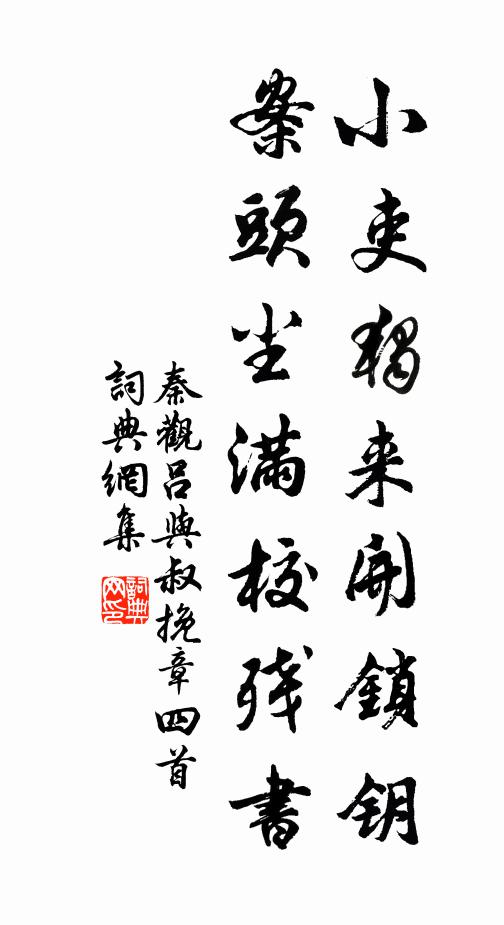 小吏獨来開鎖钥
案頭尘满校残書
秦觀吕與叔挽章四首
詞典網集
詞典网印